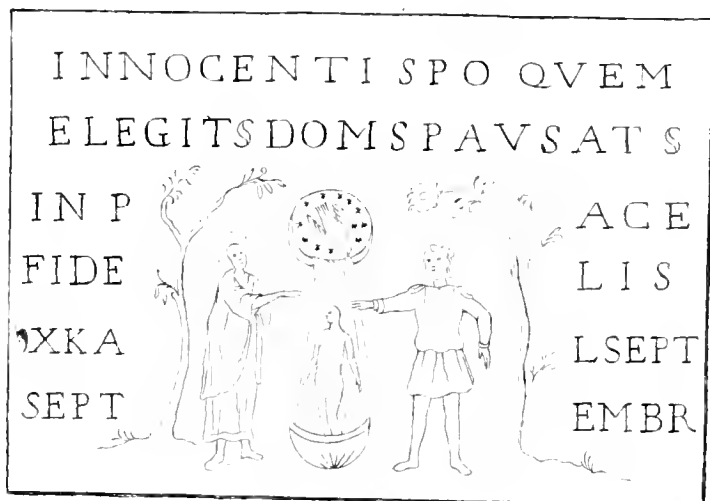 INNOCENTI SPO QVEM
ELEGITS DOMS PAVSATS
IN P ACE
FIDE LIS
XKA LSEPT
SEPT EMBR